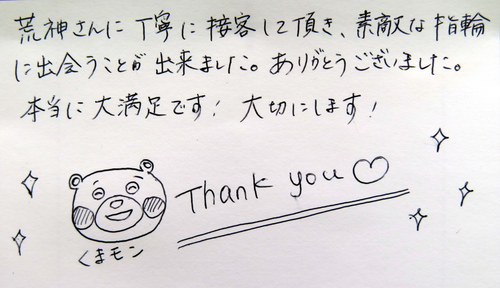 荒神さんに丁寧に接客して頂き、素敵な指輪
に出会うことが出来ました。ありがとうございました。
本当に大満足です！大切にします！
Thank you♡
くまモン